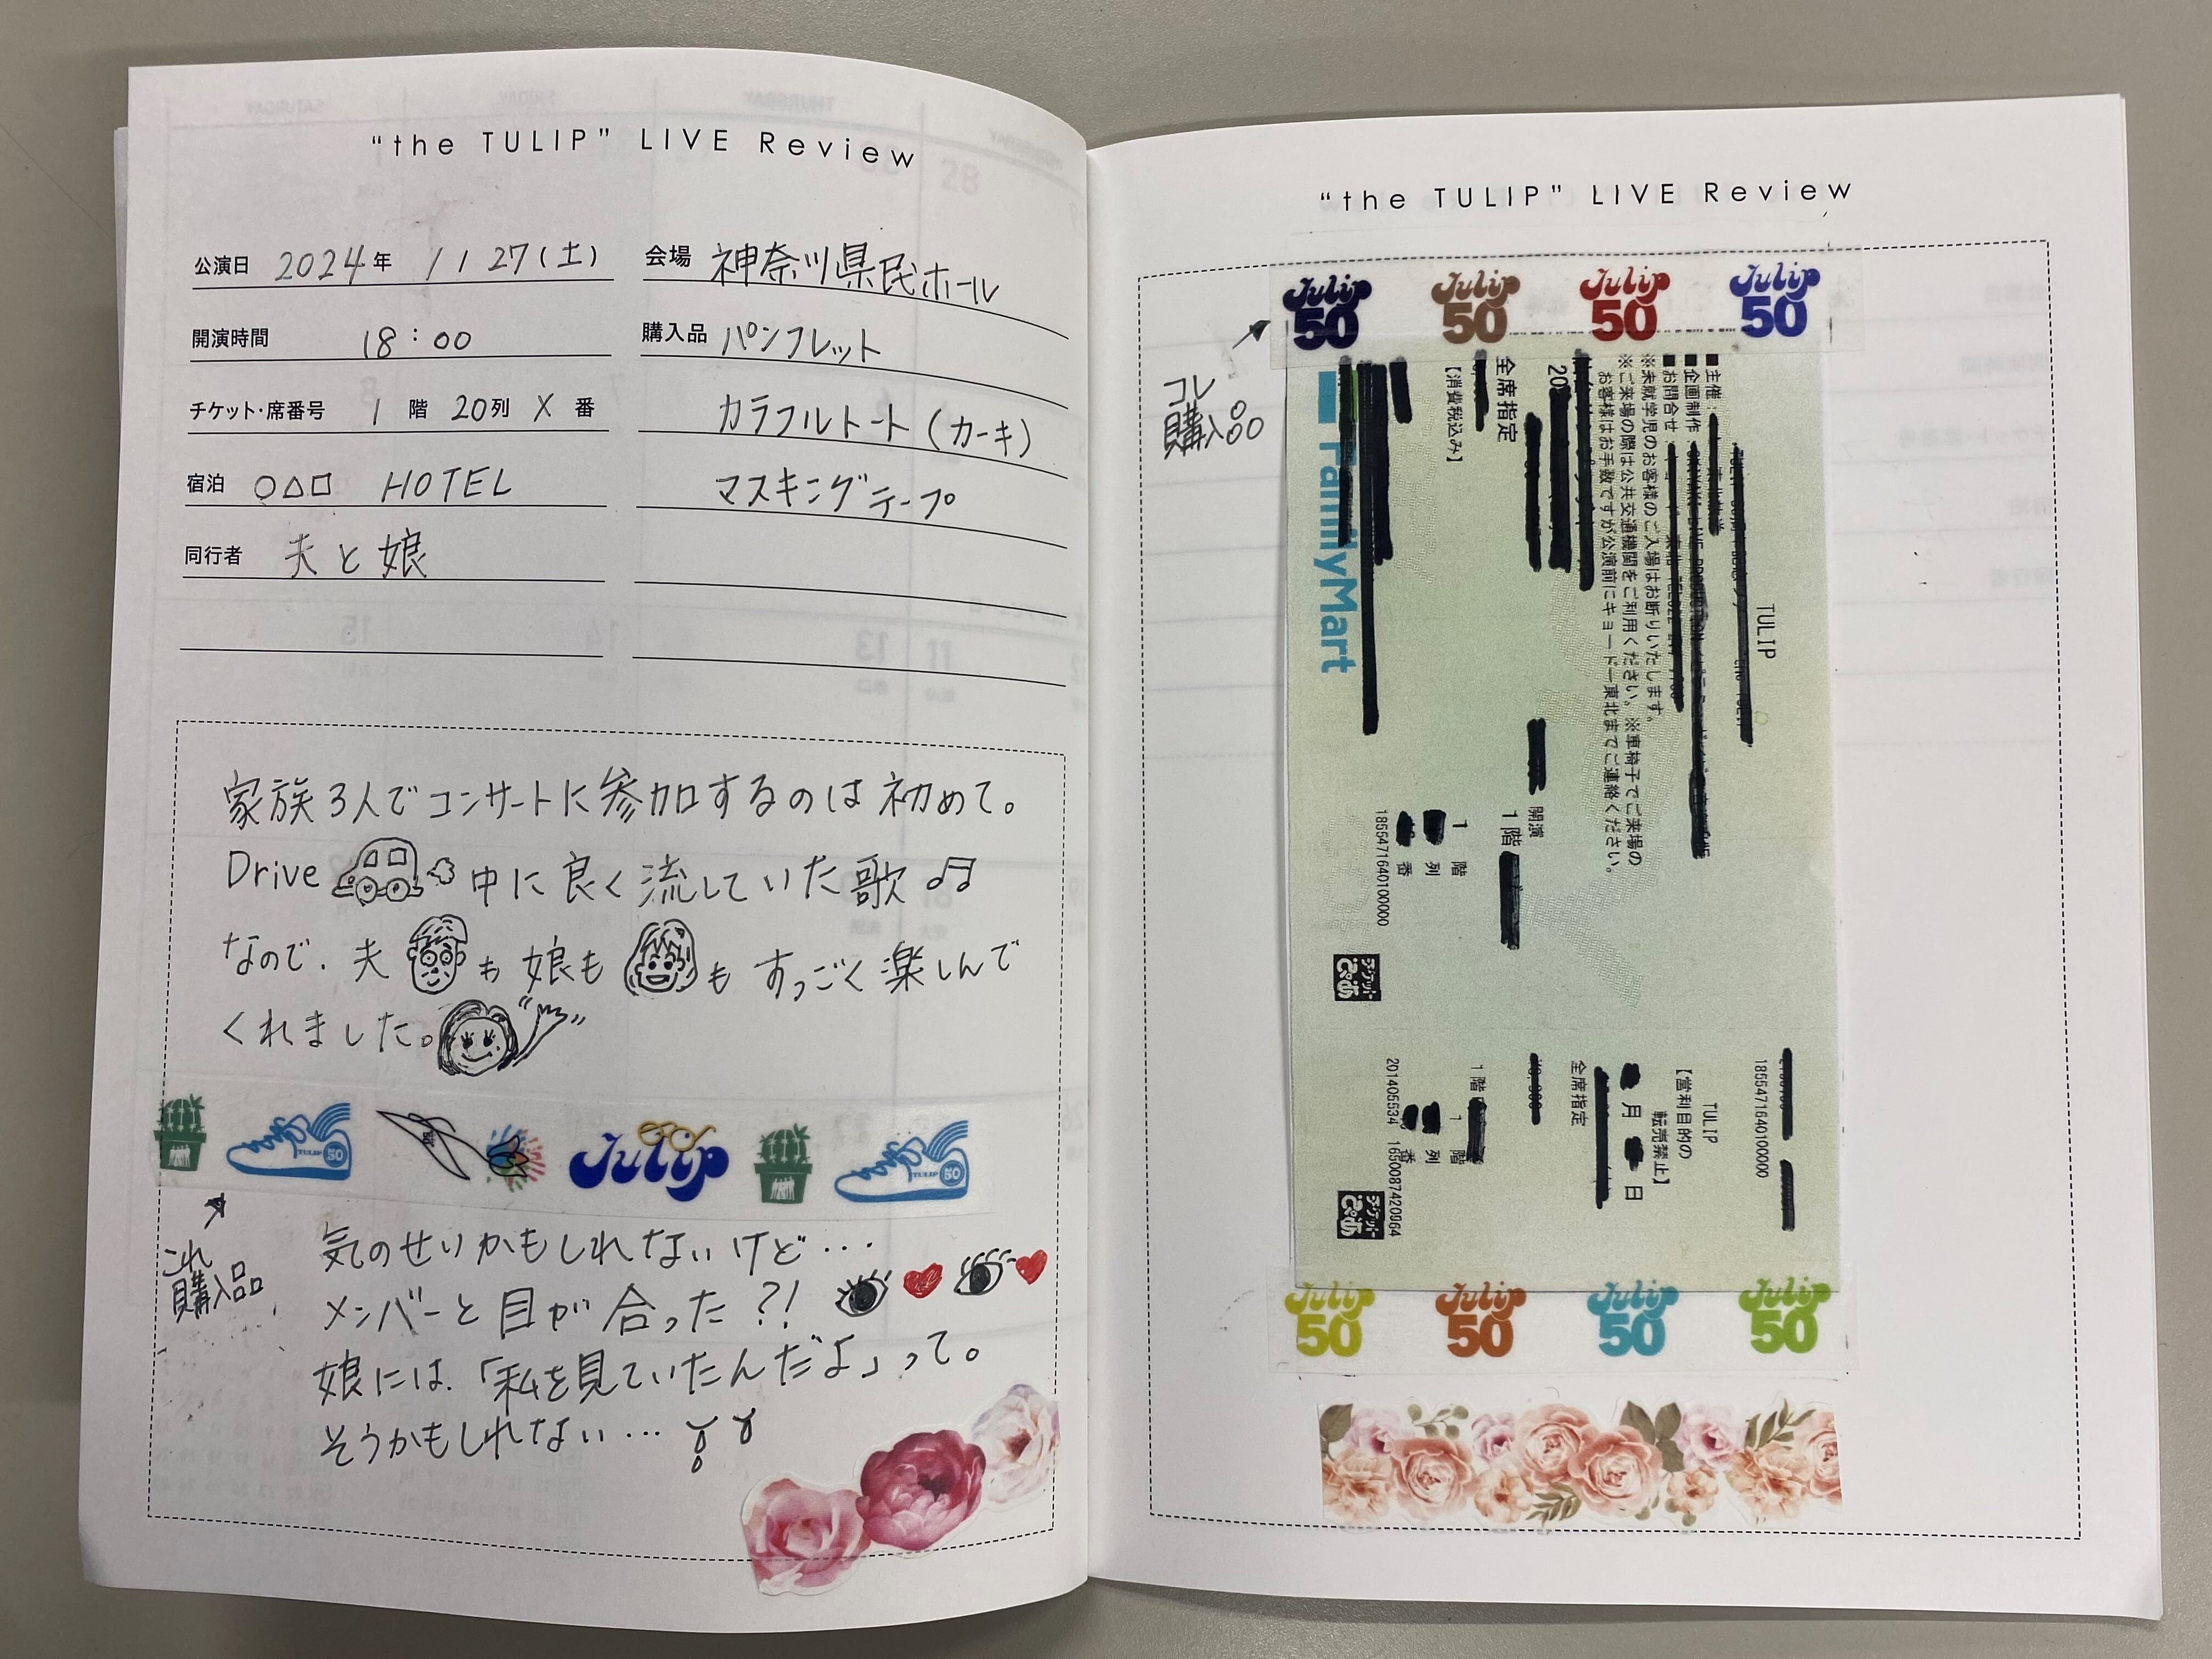 "the TULIP" LIVE Review
公演日 2024年 11 27(土)
開演時間 18:00
チケット・席番号 1 階 20列 X 番
宿泊 ○△□ HOTEL
同行者 夫と娘
会場 神奈川県民ホール
購入品 パンフレット
カラフルトート(カーキ)
マスキングテープ
家族3人でコンサートに参加するのは初めて。
Drive 中に良く流していた歌♫
なので、夫も娘もも すっごく楽しんで
くれました。
TULIP 50
Tulip
TULIP 50
これ
購入品
気のせいかもしれないけど…
メンバーと目が合った?!
娘には、「私を見ていたんだよ」って。
そうかもしれない…
"the TULIP" LIVE Review
Tulip 50 Tulip 50 Tulip 50 Tulip 50
コレ
購入品
TULIP
■主催:
■企画制作:
■お問合せ:
※未就学児のお客様のご入場はお断りいたします。
※ご来場の際は公共交通機関をご利用ください。※車椅子でご来場の
お客様はお手数ですが公演前にキョードー東北までご連絡ください。
20
開演
全席指定
1階
【消費税込み】
1 階
列
番
1855471640100000
FamilyMart
チケットぴあ
1855471640100000
TULIP
【営利目的の
転売禁止】
月 日
全席指定
1階
1 階
列
番
チケットぴあ
Tulip 50 Tulip 50 Tulip 50 Tulip 50